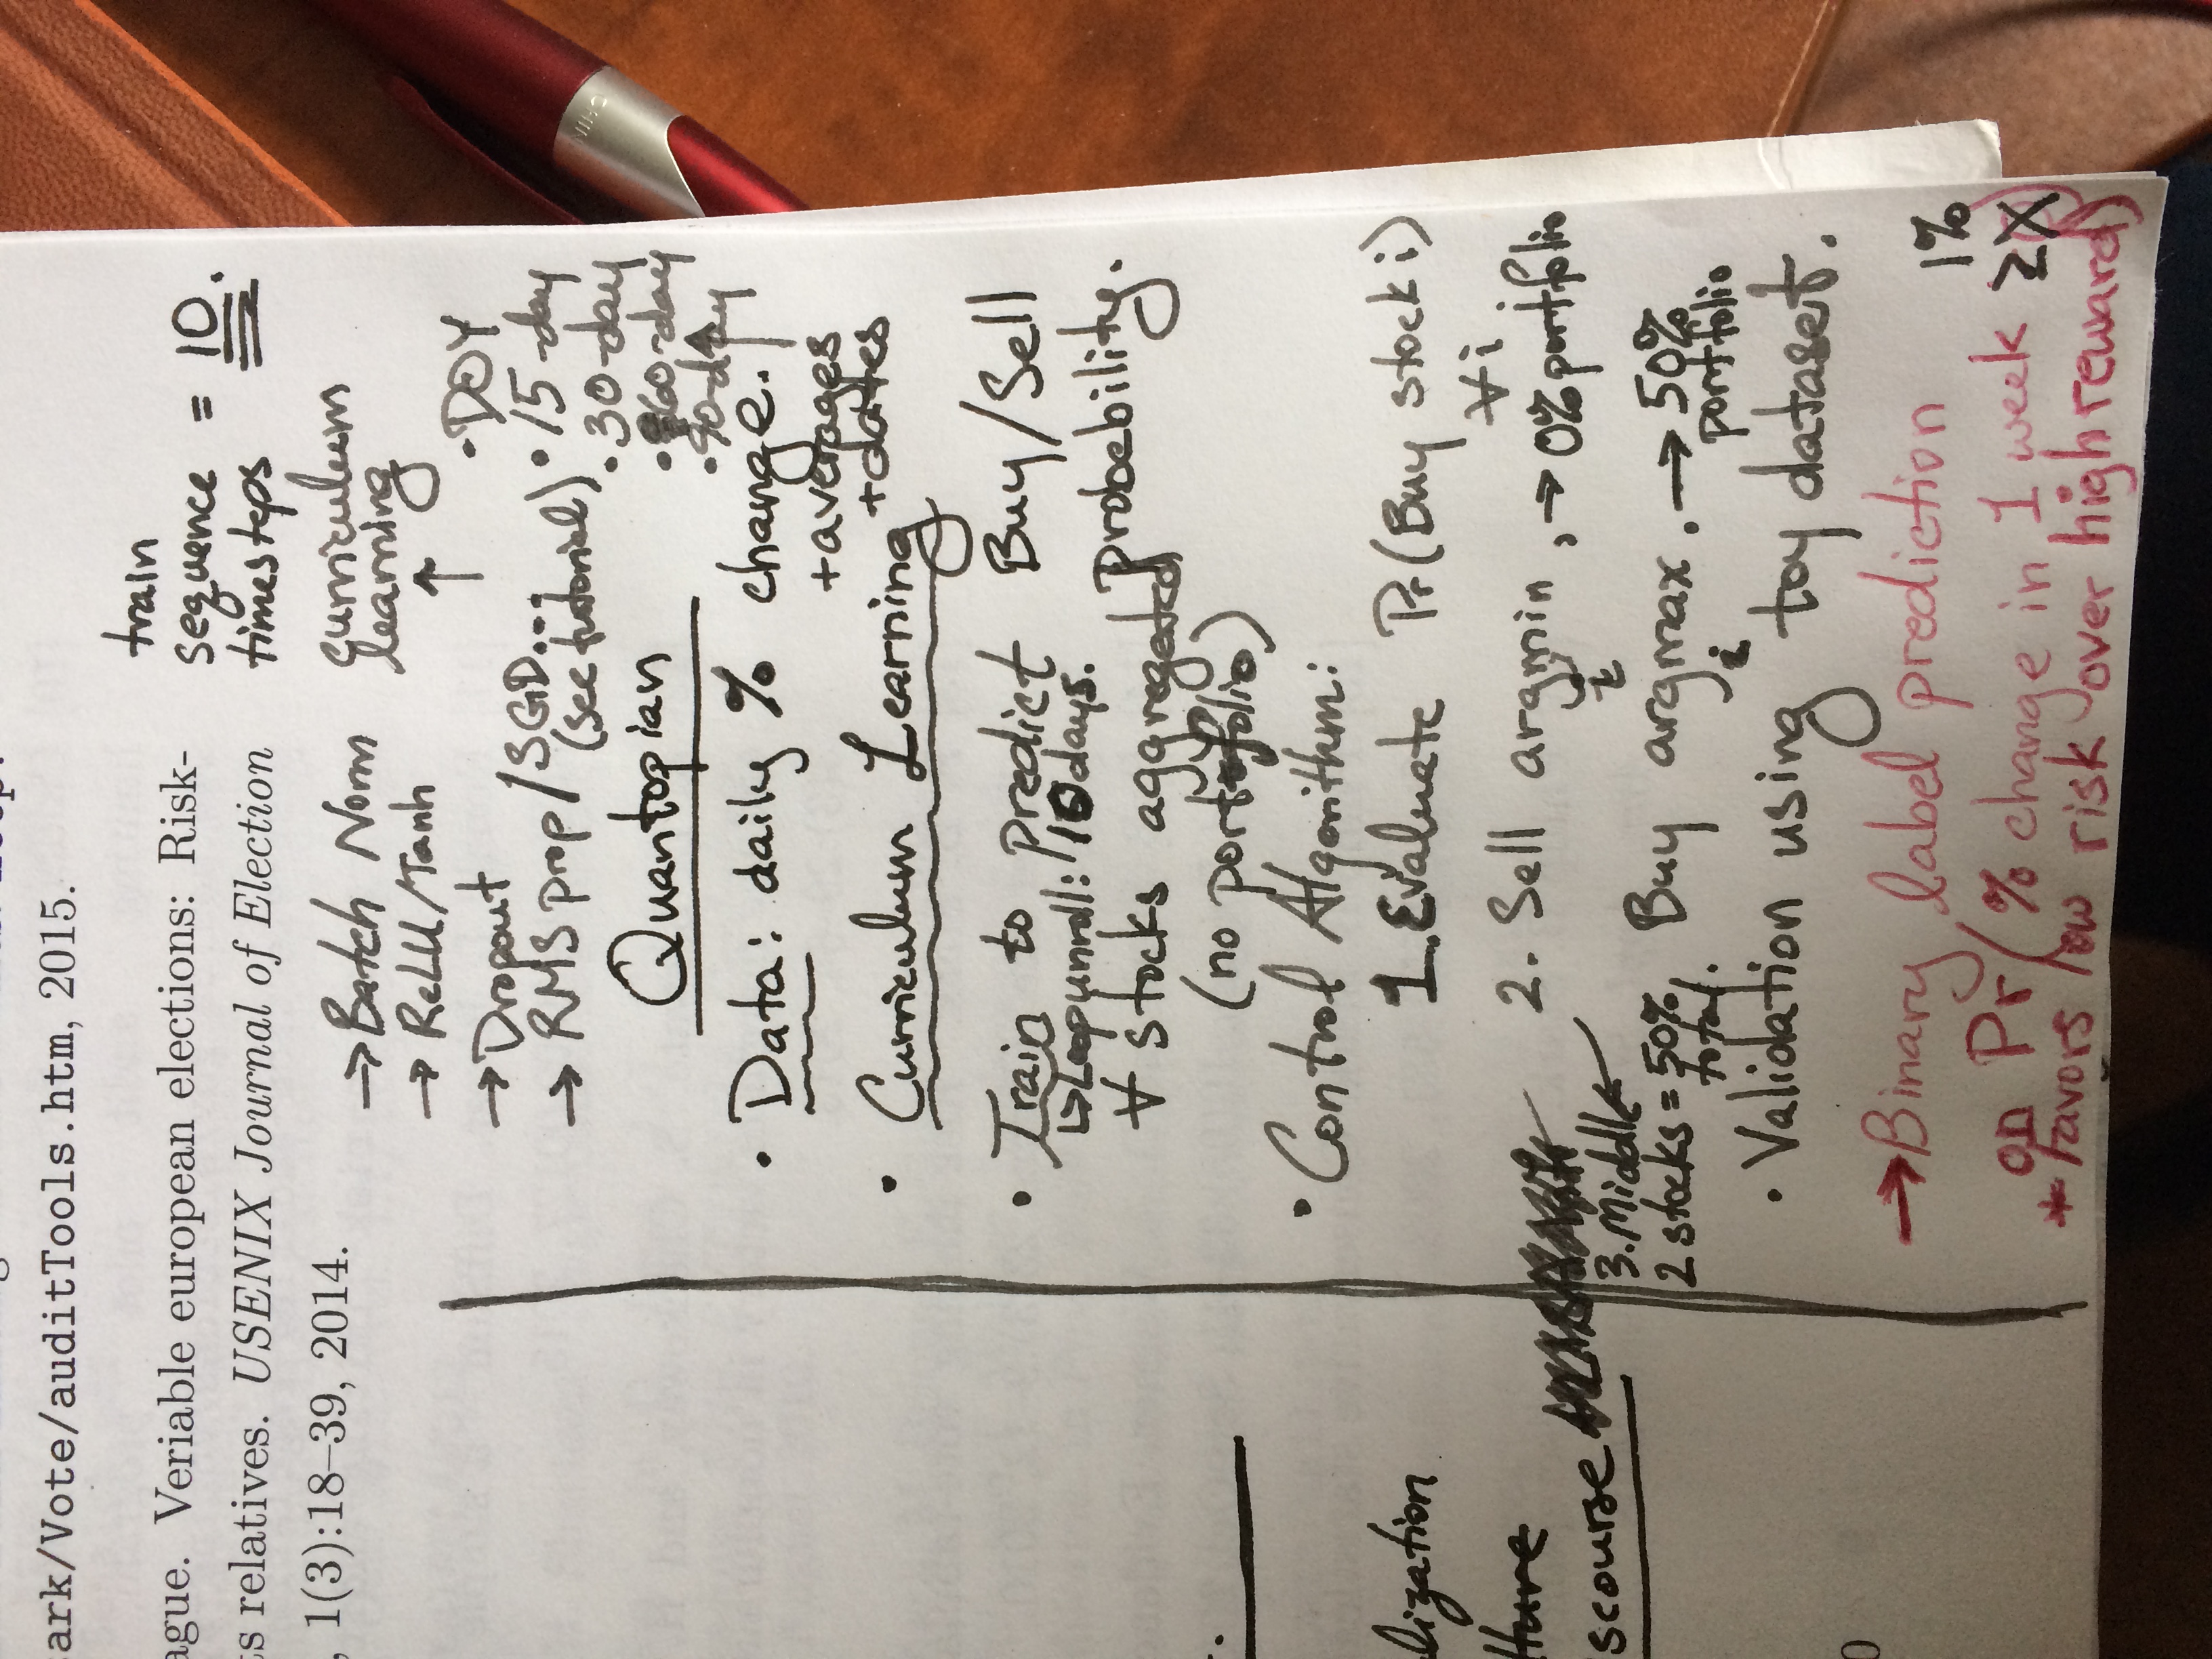 ark/Vote/auditTools.htm, 2015.
ague. Veriable european elections: Risk-
ts relatives. USENIX Journal of Election
, 1(3):18–39, 2014.
train
sequence = 10.
timesteps
curriculum
learning
↑
→ Batch Norm
→ ReLU/Tanh
→ Dropout
→ RMS prop / SGD...
(see tutorial)
• DOY
• 15-day
• 30-day
• 60-day
• 90-day
Quantopian
• Data: daily % change.
+averages
+dates
• Curriculum Learning
• Train to predict Buy/Sell
probebility.
↳ Loop unroll: 10 days.
∀ stocks aggregated
(no portofolio)
• Control Algorithm:
1. Evaluate Pr(Buy stock i)
∀i.
2. Sell argmin, → 0% portfolio
i
Buy argmax. → 50%
i
portfolio
3. Middle
2 stocks = 50%
total.
• Validation using toy dataset.
→ Binary label prediction
on Pr(% change in 1 week ≥ X)
1%
* Favors low risk over high reward)
lization
lture
scourse
0
CHIN